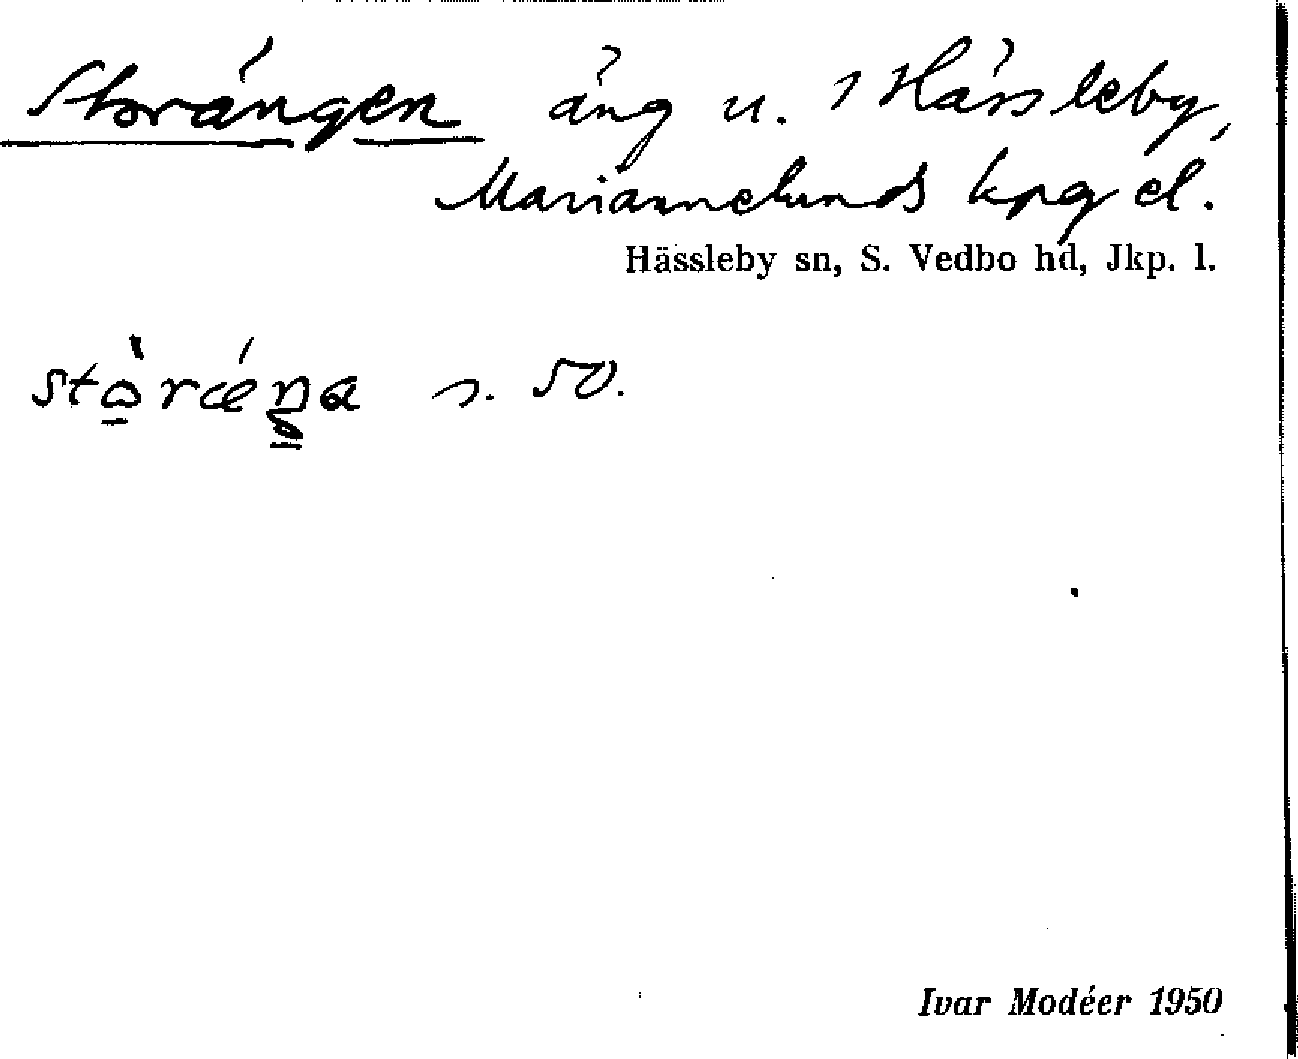 Storängen äng u. 1 Hässleby,
Mariannelunds kpg el.
Hässleby sn, S. Vedbo hd, Jkp. l.
stòrǽŋa s. 50.
Ivar Modéer 1950